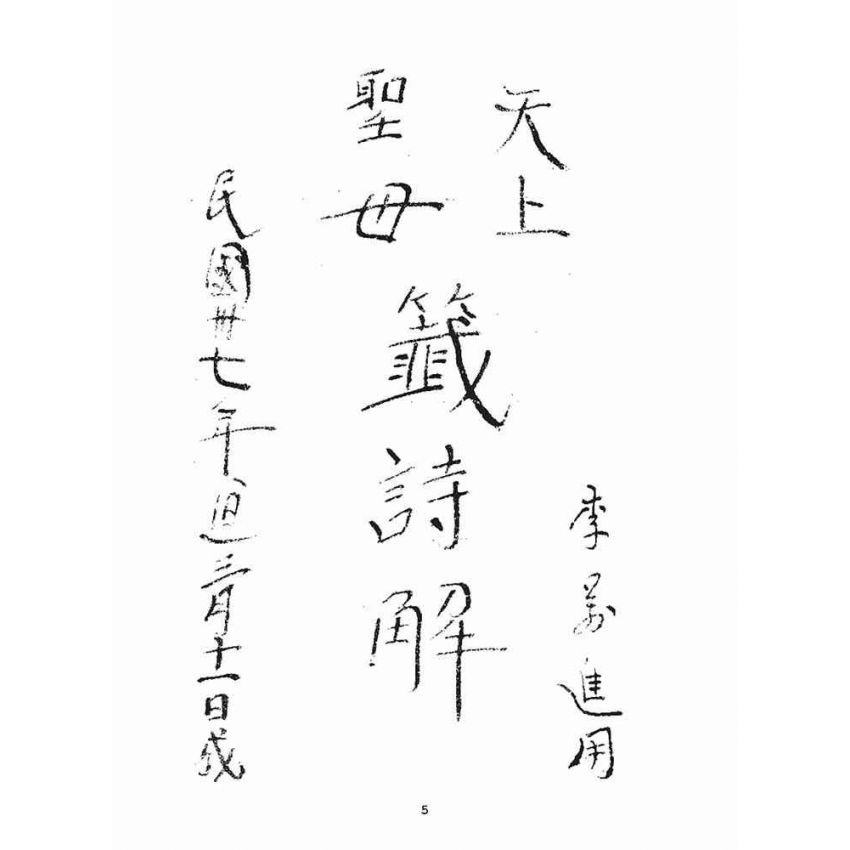 天上
聖母
籤詩解
李萬進用
民國卅七年三月十一日成
5